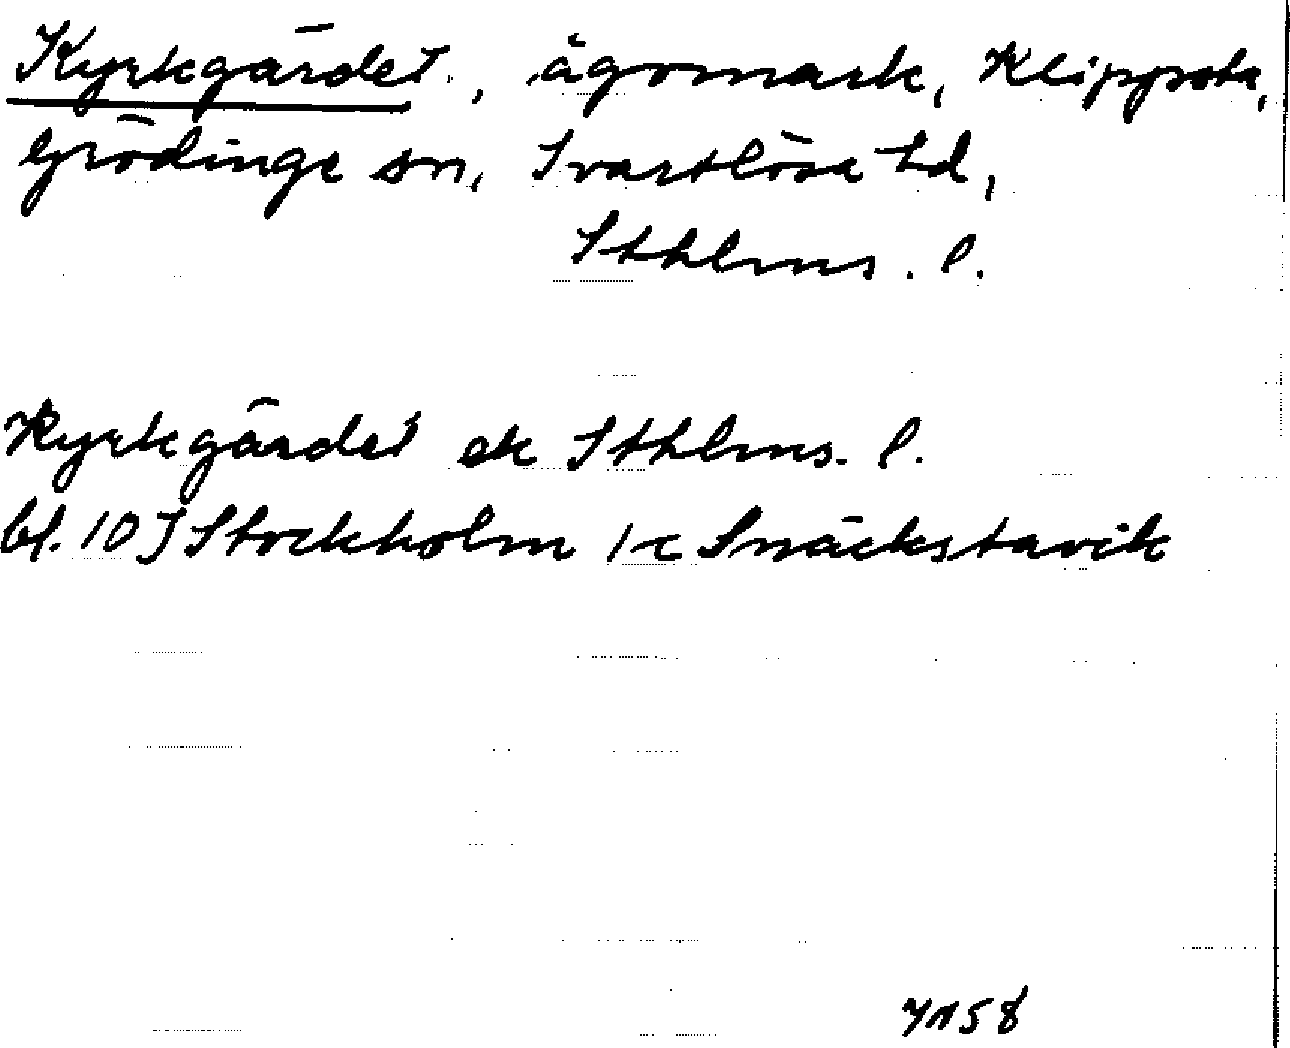 Kyrkgärdet, ägomark, Klippsta,
Grödinge sn, Svartlösa hd,
Sthlms. l.
Kyrkgärdet ek Sthlms. l.
bl. 10 I Stockholm 1 c Snäckstavik